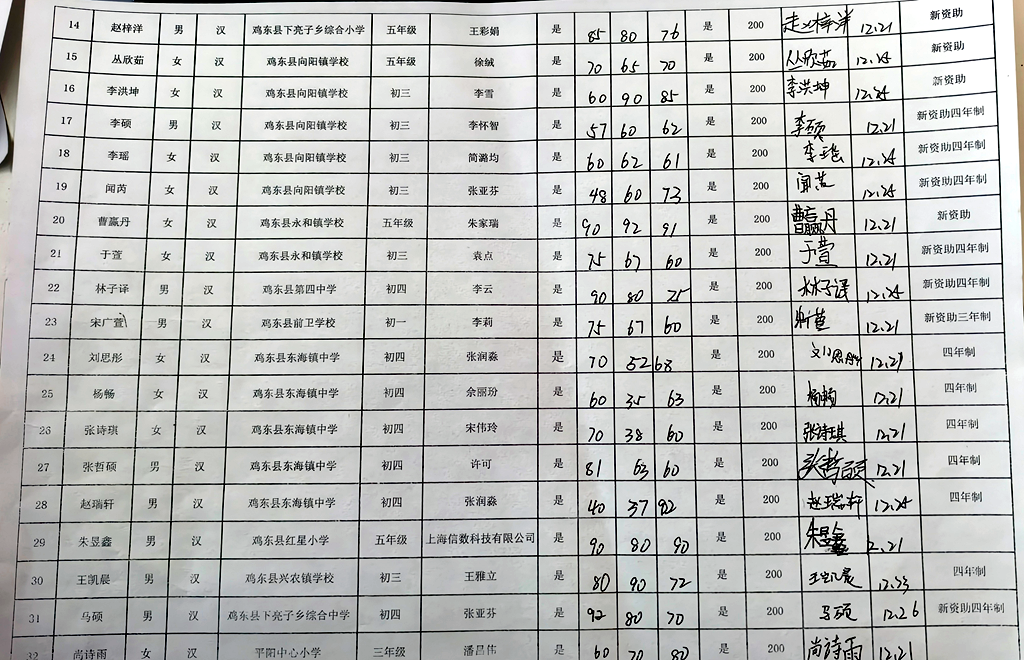 14 赵梓洋 男 汉 鸡东县下亮子乡综合小学 五年级 王彩娟 是 85 80 76 是 200 赵梓洋 12.21 新资助
15 丛欣茹 女 汉 鸡东县向阳镇学校 五年级 徐绒 是 70 65 70 是 200 丛欣茹 12.25 新资助
16 李洪坤 女 汉 鸡东县向阳镇学校 初三 李雪 是 60 90 85 是 200 李洪坤 12.25 新资助
17 李硕 男 汉 鸡东县向阳镇学校 初三 李怀智 是 57 60 62 是 200 李硕 12.21 新资助四年制
18 李瑶 女 汉 鸡东县向阳镇学校 初三 简潞均 是 60 62 61 是 200 李瑶 12.25 新资助四年制
19 闻芮 女 汉 鸡东县向阳镇学校 初三 张亚芬 是 48 60 73 是 200 闻芮 12.25 新资助四年制
20 曹赢丹 女 汉 鸡东县永和镇学校 五年级 朱家瑞 是 90 92 91 是 200 曹赢丹 12.21 新资助
21 于萱 女 汉 鸡东县永和镇学校 初三 袁点 是 75 67 60 是 200 于萱 12.21 新资助四年制
22 林子译 男 汉 鸡东县第四中学 初四 李云 是 90 80 75 是 200 林子译 12.25 新资助四年制
23 宋广萱 男 汉 鸡东县前卫学校 初一 李莉 是 75 67 60 是 200 12.21 新资助三年制
24 刘思彤 女 汉 鸡东县东海镇中学 初四 张润淼 是 70 52 68 是 200 刘思彤 12.21 四年制
25 杨畅 女 汉 鸡东县东海镇中学 初四 佘丽玢 是 60 35 63 是 200 杨畅 12.21 四年制
26 张诗琪 女 汉 鸡东县东海镇中学 初四 宋伟玲 是 70 38 60 是 200 张诗琪 12.21 四年制
27 张哲硕 男 汉 鸡东县东海镇中学 初四 许可 是 81 63 60 是 200 张哲硕 12.21 四年制
28 赵瑞轩 男 汉 鸡东县东海镇中学 初四 张润淼 是 40 37 92 是 200 赵瑞轩 12.25 四年制
29 朱昱鑫 男 汉 鸡东县红星小学 五年级 上海信数科技有限公司 是 90 80 90 是 200 朱昱鑫 12.21
30 王凯晨 男 汉 鸡东县兴农镇学校 初三 王雅立 是 80 90 72 是 200 王凯晨 12.23 四年制
31 马硕 男 汉 鸡东县下亮子乡综合中学 初四 张亚芬 是 92 80 70 是 200 马硕 12.26 新资助四年制
32 尚诗雨 女 汉 平阳中心小学 三年级 潘昌伟 是 60 70 80 是 200 尚诗雨 12.21